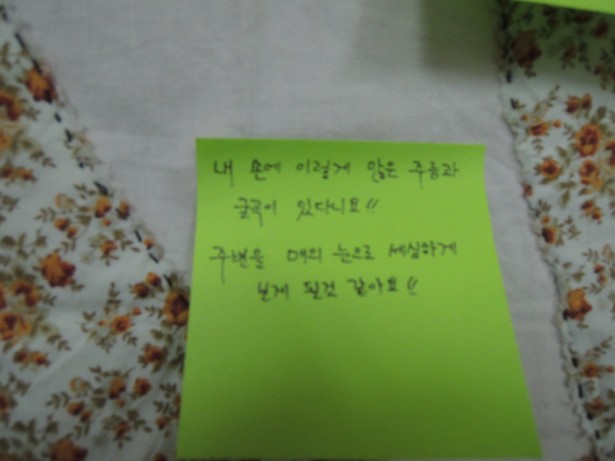 내 손에 이렇게 많은 주름과
굴곡이 있다니요!!
주변을 매의 눈으로 세심하게
보게 될것 같아요!!